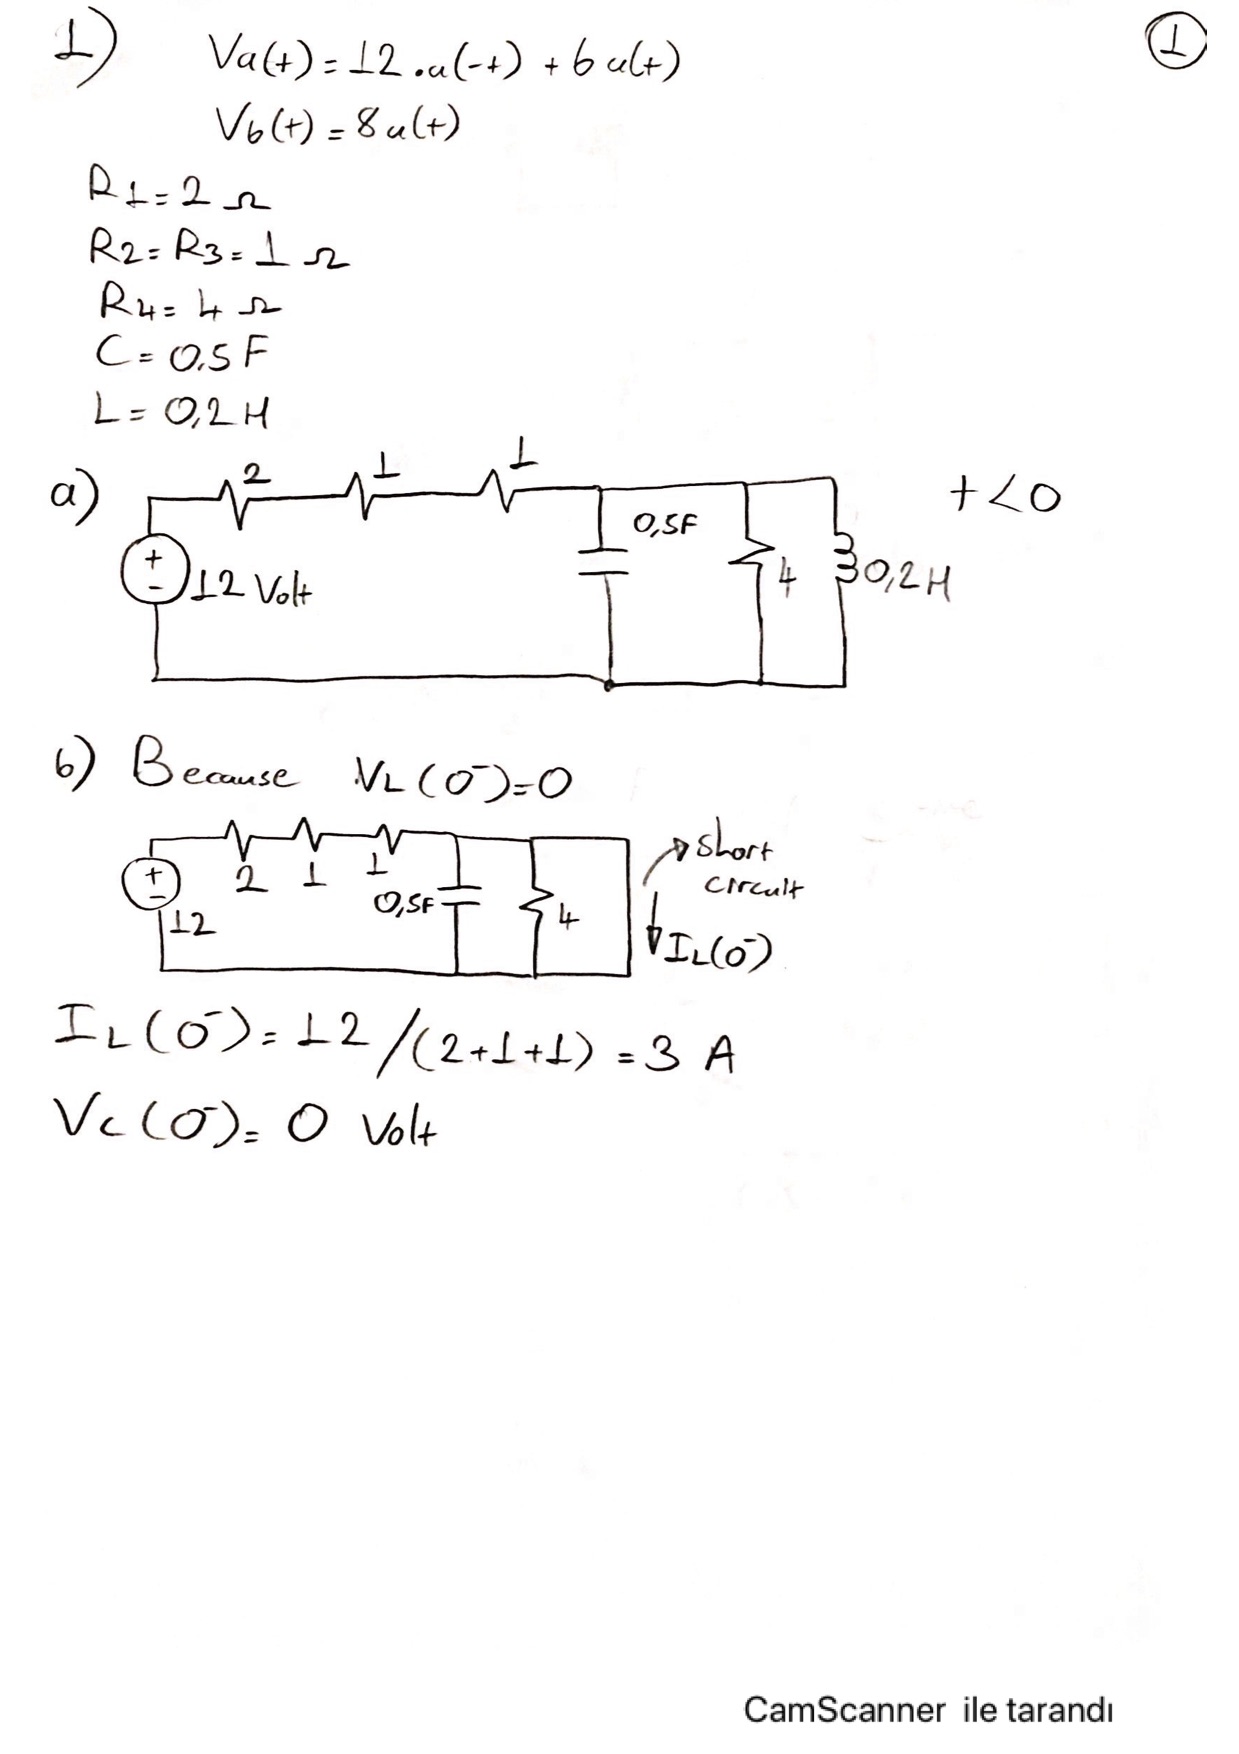 1) Va(t) = 12.u(-t) + 6u(t)
1
Vb(t) = 8u(t)
R1 = 2 Ω
R2 = R3 = 1 Ω
R4 = 4 Ω
C = 0.5 F
L = 0,2 H
a) 2 1 1 t<0
0,5F
+ - 12 Volt 4 0,2 H
b) Because VL(0⁻)=0
short
circuit
+ - 2 1 1
0,5F 4
12
IL(0⁻)
IL(0⁻) = 12/(2+1+1) = 3 A
Vc(0⁻) = 0 Volt
CamScanner ile tarandı